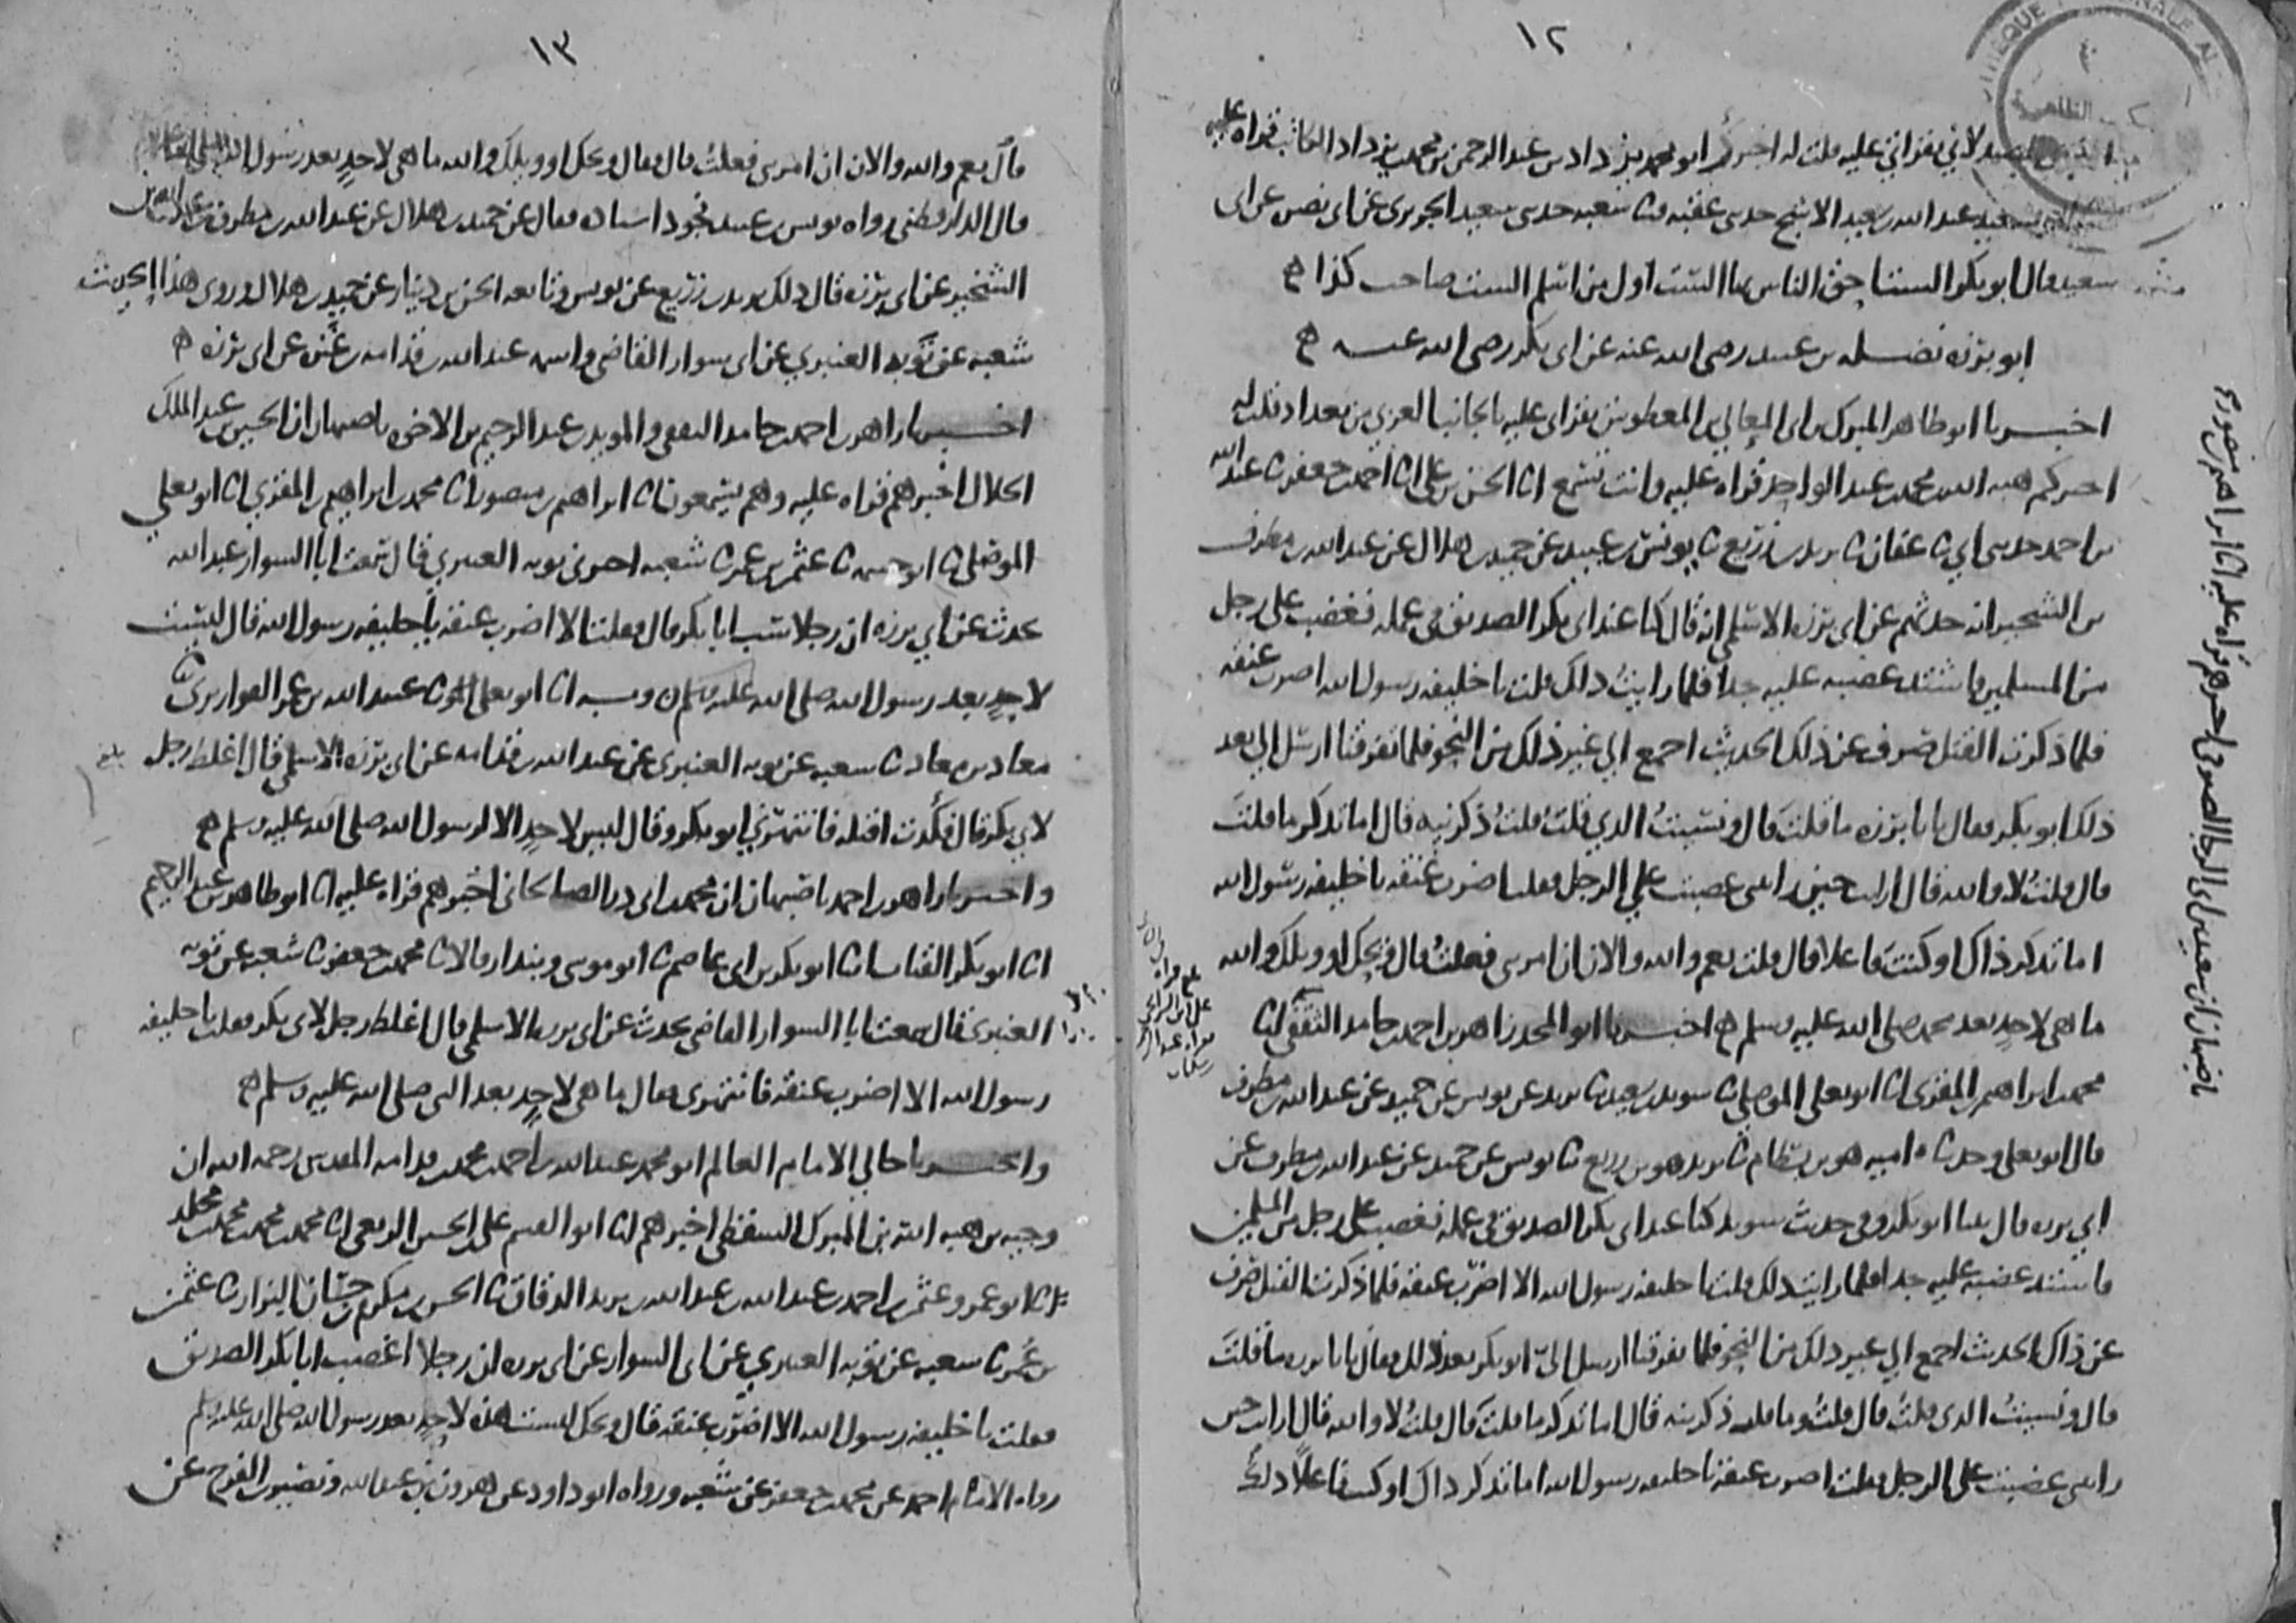 ١٢
لاني بقراتي عليه قلت له اخبركم ابو محمد يزداد بن عبد الرحمن بن محمد بن يزداد الكاتب قراه عليه
عبد الله بن سعيد الاشج حدثني عقبه ثنا شعبه حدثني سعيد الجريري عن ابي نضره عن ابي
سعيد قال ابو بكر الست احق الناس بها الست اول من اسلم الست صاحب كذا
ابو برزه نضله بن عبيد رضي الله عنه عن ابي بكر رضي الله عنه
اخبرنا ابو طاهر المبرك بن ابي المعالي بن المعطوش بقراتي عليه بالجانب الغربي من بغداد قلت له
اخبركم هبه الله بن محمد بن عبد الواحد قراه عليه وانت تسمع انا الحسن بن علي انا احمد بن جعفر ثنا عبد الله
بن احمد حدثني ابي ثنا عفان ثنا يزيد بن زريع ثنا يونس بن عبيد عن حميد بن هلال عن عبد الله بن مطرف
بن الشخير انه حدثهم عن ابي برزه الاسلمي انه قال كنا عند ابي بكر الصديق في عمله فغضب على رجل
من المسلمين فاشتد غضبه عليه جدا فلما رايت ذلك قلت يا خليفه رسول الله اضرب عنقه
فلما ذكرت القتل صرف عن ذلك الحديث اجمع الى غير ذلك من النحو فلما تفرقنا ارسل الي بعد
ذلك ابو بكر فقال يا با برزه ما قلت قال ونسيت الذي قلت قلت ذكرنيه قال اما تذكر ما قلت
قال قلت لا والله قال ارايت حين رايتني غضبت على الرجل فقلت اضرب عنقه يا خليفه رسول الله
اما تذكر ذاك اوكنت فاعلا قال قلت نعم والله والان ان امرتني فعلت قال ويحك او ويلك والله
ما هي لاحد بعد محمد صلى الله عليه وسلم اخبرنا ابو المجد زاهر بن احمد بن حامد الثقفي
محمد بن ابراهيم بن المقرئ انا ابو يعلى الموصلي ثنا سويد بن سعيد ثنا يزيد عن يونس عن حميد عن عبد الله بن مطرف
قال ابو يعلى وحدثنا اميه هو بن بسطام ثنا يزيد هو بن زريع ثنا يونس عن حميد عن عبد الله بن مطرف عن
ابي برزه قال بينا ابو بكر وفي حديث سويد كنا عند ابي بكر الصديق في عمله فغضب على رجل من المسلمين
فاشتد غضبه عليه جدا فلما رايت ذلك قلت يا خليفه رسول الله الا اضرب عنقه فلما ذكرت القتل صرف
عن ذاك الحديث اجمع الى غير ذلك من النحو فلما تفرقنا ارسل الي ابو بكر بعد ذلك فقال يا با برزه ما قلت
قال ونسيت الذي قلت قال قلت وما قلت ذكرنيه قال اما تذكر ما قلت قال قلت لا والله قال ارايت حين
رايتني غضبت على الرجل فقلت اضرب عنقه يا خليفه رسول الله اما تذكر ذاك اوكنت فاعلا ذلك
باصبهان ان سعيد بن ابي الرجا الصيرفي اخبرهم قراه عليه انا ابراهيم بن منصور
١٣
قال نعم والله والان ان امرتني فعلت قال فقال ويحك او ويلك والله ما هي لاحد بعد رسول الله صلى الله عليه
قال الدارقطني رواه يونس بن عبيد فجود اسناده فقال عن حميد بن هلال عن عبد الله بن مطرف بن عبد الله بن
الشخير عن ابي برزه قال ذلك يزيد بن زريع عن يونس وتابعه الحسن بن دينار عن حميد بن هلال وروى هذا الحديث
شعبه عن توبه العنبري عن ابي سوار القاضي واسمه عبد الله بن قدامه بن عنزه عن ابي برزه
اخبرنا زاهر بن احمد بن حامد الثقفي والمويد بن عبد الرحيم بن الاخوه باصبهان ان الحسين بن عبد الملك
الخلال اخبرهم قراه عليه وهم يسمعون انا ابراهيم بن منصور انا محمد بن ابراهيم بن المقرئ انا ابو يعلى
الموصلي ثنا ابو خيثمه ثنا عثمن بن عمر ثنا شعبه اخبرني توبه العنبري قال سمعت ابا السوار عبد الله
يحدث عن ابي برزه ان رجلا سب ابا بكر قال فقلت الا اضرب عنقه يا خليفه رسول الله قال ليست
لاحد بعد رسول الله صلى الله عليه وسلم وبه انا ابو يعلى ثنا عبيد الله بن عمر القواريري ثنا
معاذ بن معاذ ثنا شعبه عن توبه العنبري عن عبد الله بن قدامه عن ابي برزه الاسلمي قال اغلظ رجل
لابي بكر قال فكدت اقتله فانتهرني ابو بكر وقال ليس لاحد الا لرسول الله صلى الله عليه وسلم
واخبرنا زاهر بن احمد باصبهان ان محمد بن ابي ذر الصالحاني اخبرهم قراه عليه انا ابو طاهر بن عبد الرحيم
انا ابو بكر القباب انا ابو بكر بن ابي عاصم ثنا ابو موسى وبندار قالا ثنا محمد بن جعفر ثنا شعبه عن توبه
العنبري قال سمعت ابا السوار القاضي يحدث عن ابي برزه الاسلمي قال اغلظ رجل لابي بكر فقلت يا خليفه
رسول الله الا اضرب عنقه فانتهرني فقال ما هي لاحد بعد النبي صلى الله عليه وسلم
واخبرنا خالي الامام العالم ابو محمد عبد الله بن احمد بن محمد بن قدامه المقدسي رحمه الله ان
وجيه بن هبه الله بن المبرك السقطي اخبرهم انا ابو القسم علي بن الحسين الربعي انا محمد بن محمد بن محمد بن مخلد
انا ابو عمرو عثمن بن احمد بن عبد الله بن يزيد الدقاق ثنا الحسن بن مكرم بن حسان البزار ثنا عثمن
بن عمر ثنا شعبه عن توبه العنبري عن ابي السوار عن ابي برزه ان رجلا اغضب ابا بكر الصديق
فقلت يا خليفه رسول الله الا اضرب عنقه قال ويحك ليست هذه لاحد بعد رسول الله صلى الله عليه وسلم
رواه الامام احمد عن محمد بن جعفر عن شعبه ورواه ابو داود عن هرون بن عبد الله ونصير بن الفرج عن